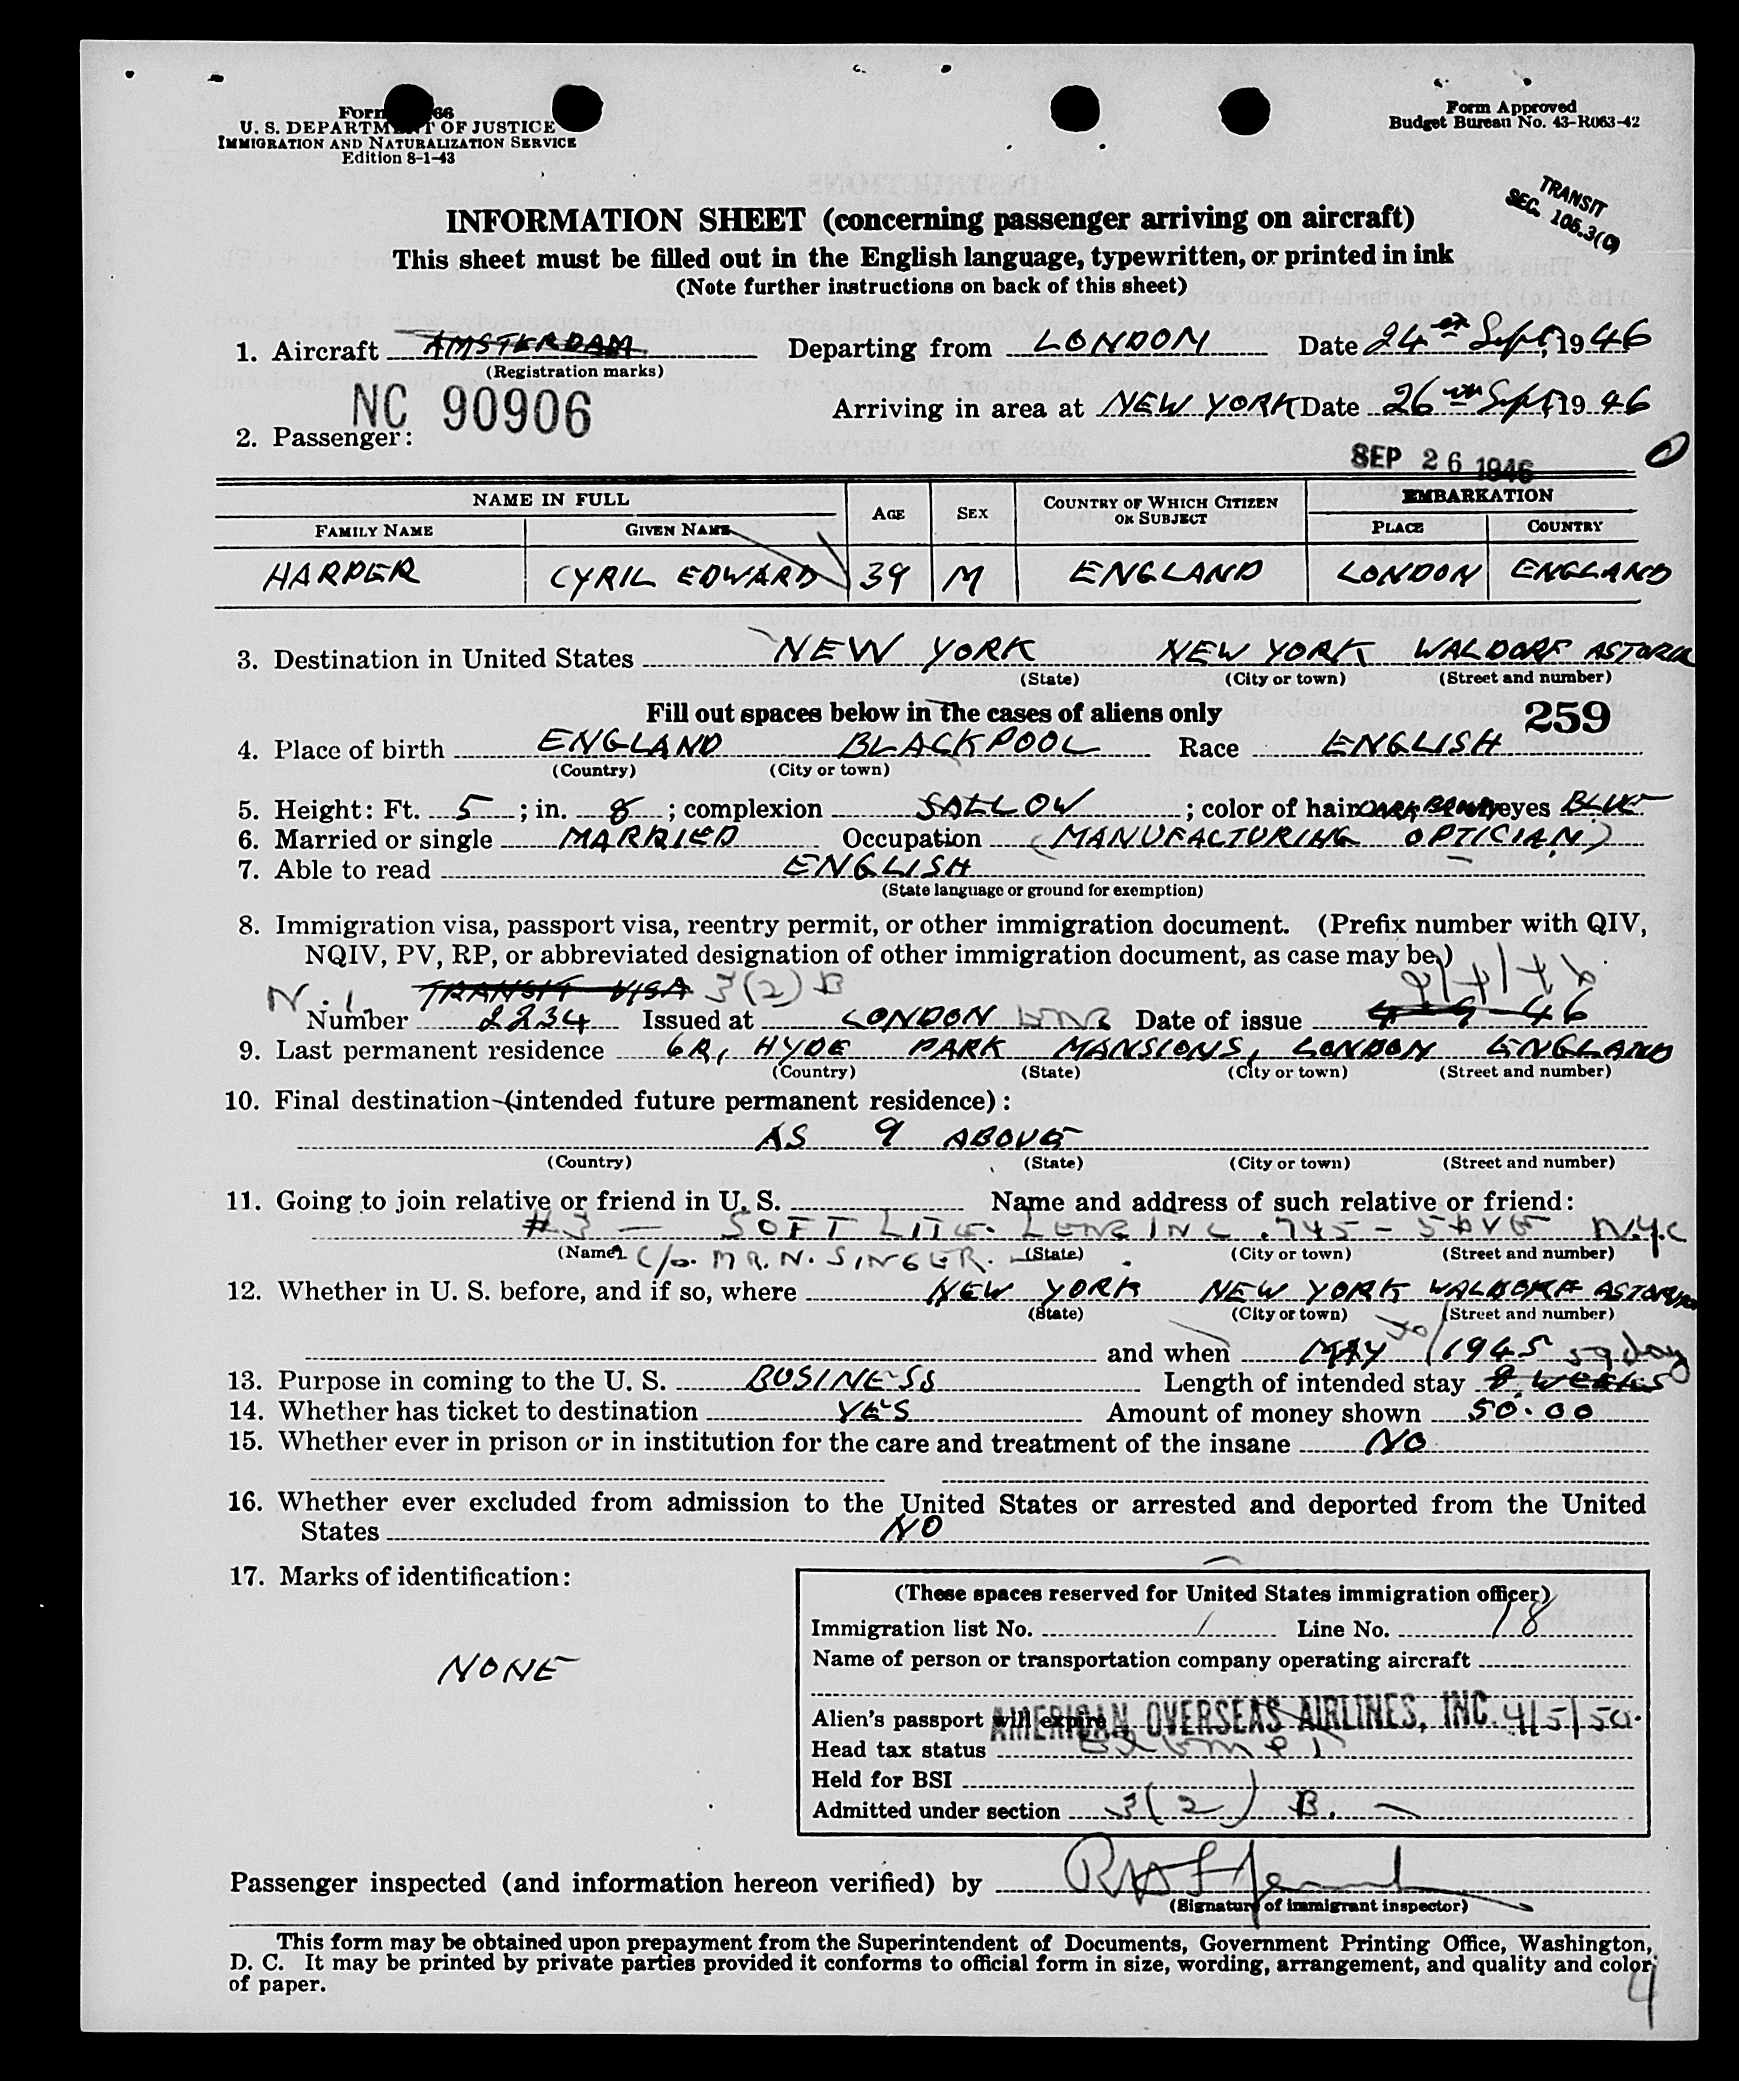 Form 66
U. S. DEPARTMENT OF JUSTICE
IMMIGRATION AND NATURALIZATION SERVICE
Edition 8-1-43
Form Approved
Budget Bureau No. 43-R063-42
TRANSIT
SEC. 105.3(C)
INFORMATION SHEET (concerning passenger arriving on aircraft)
This sheet must be filled out in the English language, typewritten, or printed in ink
(Note further instructions on back of this sheet)
1. Aircraft AMSTERDAM Departing from LONDON Date 24th Sept, 1946
(Registration marks)
NC 90906
Arriving in area at NEW YORK Date 26th Sept, 1946
2. Passenger:
SEP 26 1946
NAME IN FULL AGE SEX COUNTRY OF WHICH CITIZEN OR SUBJECT EMBARKATION
FAMILY NAME GIVEN NAME PLACE COUNTRY
HARPER CYRIL EDWARD 39 M ENGLAND LONDON ENGLAND
3. Destination in United States NEW YORK NEW YORK WALDORF ASTORIA
(State) (City or town) (Street and number)
Fill out spaces below in the cases of aliens only 259
4. Place of birth ENGLAND BLACKPOOL Race ENGLISH
(Country) (City or town)
5. Height: Ft. 5; in. 8; complexion SALLOW; color of hair DARK BROWN eyes BLUE
6. Married or single MARRIED Occupation (MANUFACTURING OPTICIAN)
7. Able to read ENGLISH
(State language or ground for exemption)
8. Immigration visa, passport visa, reentry permit, or other immigration document. (Prefix number with QIV,
NQIV, PV, RP, or abbreviated designation of other immigration document, as case may be.)
N.I. TRANSIT VISA 3(2)B 9/4/46
Number 2234 Issued at LONDON Date of issue 4-9-46
9. Last permanent residence 6R, HYDE PARK MANSIONS, LONDON ENGLAND
(Country) (State) (City or town) (Street and number)
10. Final destination (intended future permanent residence):
AS 9 ABOVE
(Country) (State) (City or town) (Street and number)
11. Going to join relative or friend in U. S. Name and address of such relative or friend:
#3 — SOFT LITE LENS INC. 745 - 5 AVE N.Y.C
(Name) (State) (City or town) (Street and number)
C/o. MR. N. SINGER.
12. Whether in U. S. before, and if so, where NEW YORK NEW YORK WALDORF ASTORIA
(State) (City or town) (Street and number)
and when MAY 1945
13. Purpose in coming to the U. S. BUSINESS Length of intended stay 8 WEEKS 59 day
14. Whether has ticket to destination YES Amount of money shown 50.00
15. Whether ever in prison or in institution for the care and treatment of the insane NO
16. Whether ever excluded from admission to the United States or arrested and deported from the United
States NO
17. Marks of identification:
NONE
(These spaces reserved for United States immigration officer)
Immigration list No. 1 Line No. 18
Name of person or transportation company operating aircraft
AMERICAN OVERSEAS AIRLINES, INC.
Alien's passport will expire 4/5/50.
Head tax status
Held for BSI
Admitted under section 3(2) B.
Passenger inspected (and information hereon verified) by
(Signature of immigrant inspector)
This form may be obtained upon prepayment from the Superintendent of Documents, Government Printing Office, Washington,
D. C. It may be printed by private parties provided it conforms to official form in size, wording, arrangement, and quality and color
of paper.
4